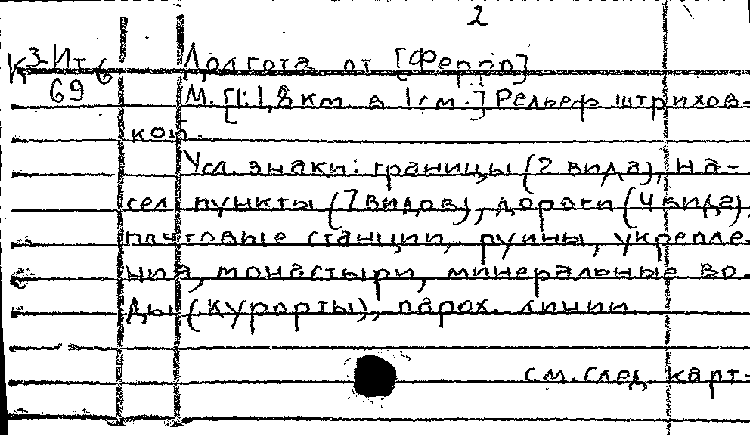 2
К 3-Ит 6
69
Долгота от [Ферро]
М. [1:1,8 км в 1 см.] Рельеф штрихов-
кой.
Усл. знаки: границы (2 вида), на-
сел. пункты (7 видов), дороги (4 вида),
почтовые станции, руины, укрепле-
ния, монастыри, минеральные во-
ды (курорты), парох. линии.
см. след. карт-